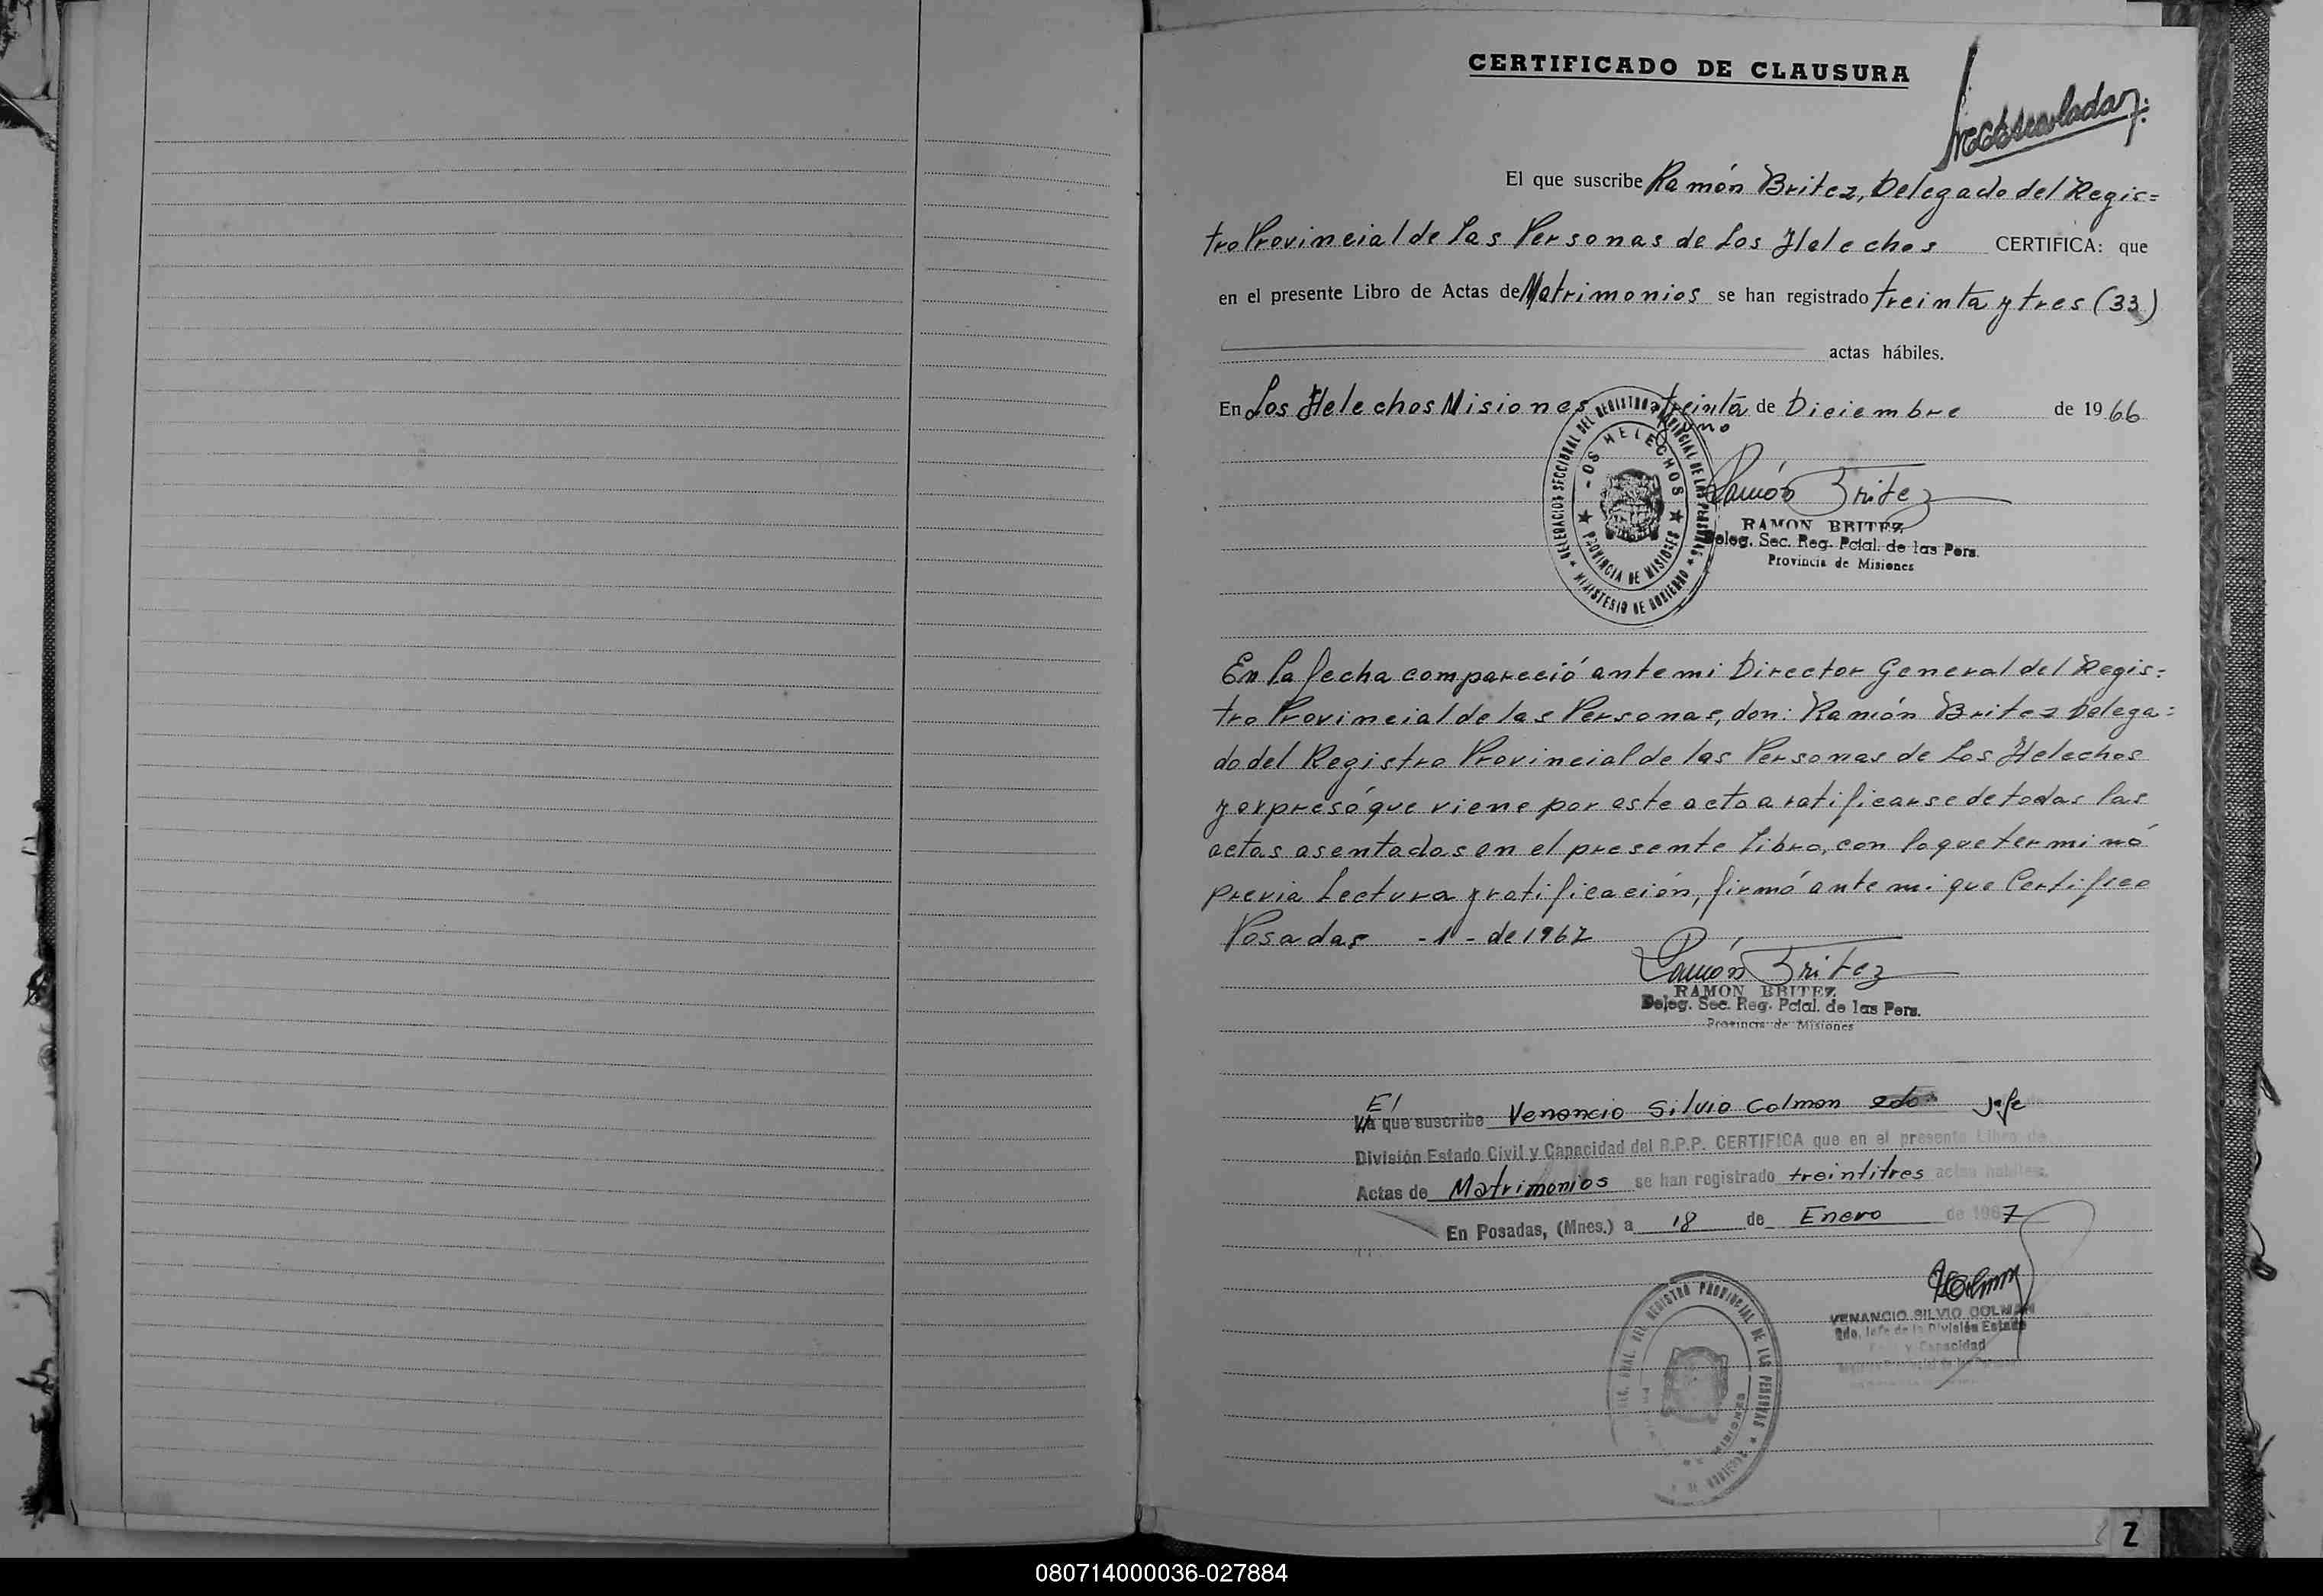 CERTIFICADO DE CLAUSURA
El que suscribe Ramón Britez, Delegado del Regis=
tro Provincial de las Personas de Los Helechos CERTIFICA: que
en el presente Libro de Actas de Matrimonios se han registrado treinta y tres (33)
actas hábiles.
En Los Helechos Misiones a treinta de Diciembre de 1966
y uno
DELEGACION SECCIONAL DEL REGISTRO PROVINCIAL DE LAS PERSONAS
LOS HELECHOS
PROVINCIA DE MISIONES
MINISTERIO DE GOBIERNO
Ramón Britez
RAMON BRITEZ
Deleg. Sec. Reg. Pcial. de las Pers.
Provincia de Misiones
En la fecha compareció ante mi Director General del Regis=
tro Provincial de las Personas, don: Ramón Britez Delega=
do del Registro Provincial de las Personas de Los Helechos
y expresó que viene por este acto a ratificarse de todas las
actas asentadas en el presente libro, con lo que terminó
previa lectura y ratificación, firmó ante mi que Certifico
Posadas -1- de 1967
Ramón Britez
RAMON BRITEZ
Deleg. Sec. Reg. Pcial. de las Pers.
Provincia de Misiones
El
La que suscribe Venancio Silvio Colman 2do Jefe
División Estado Civil y Capacidad del R.P.P. CERTIFICA que en el presente Libro de
Actas de Matrimonios se han registrado treintitres actas habiles.
En Posadas, (Mnes.) a 18 de Enero de 1967
VENANCIO SILVIO COLMAN
2do. Jefe de la División Estado
y Capacidad
REGISTRO PROVINCIAL DE LAS PERSONAS
MISIONES
2
080714000036-027884